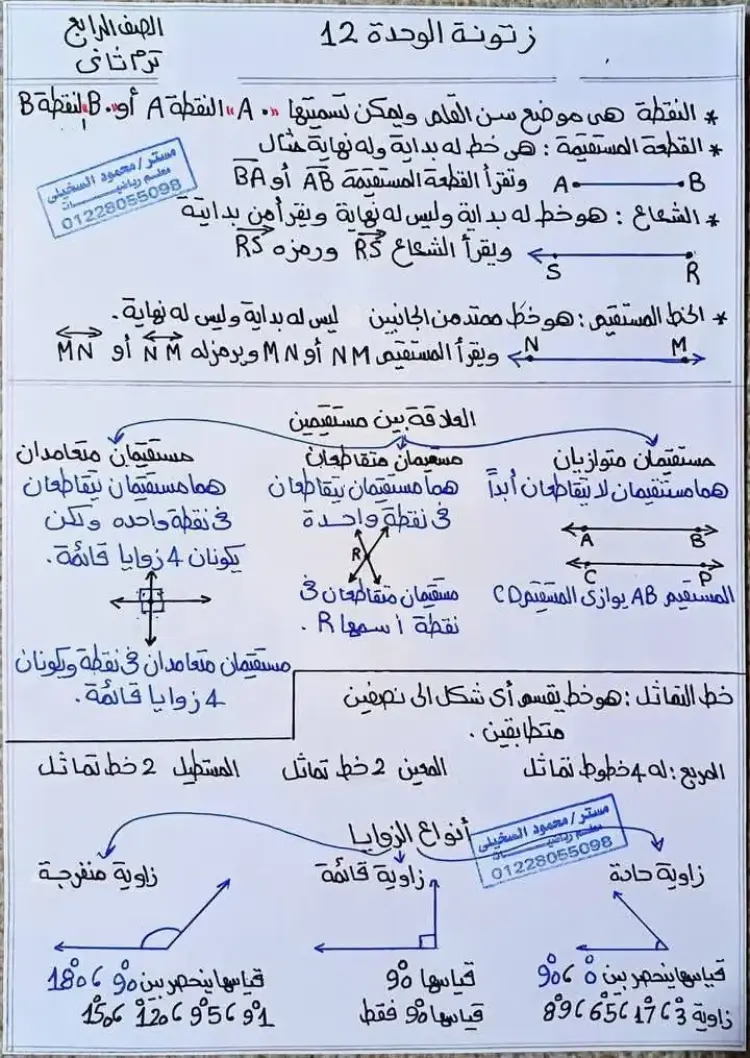 الصف الرابع
ترم ثاني
زتونة الوحدة 12
* النقطة هي موضع سن القلم ويمكن تسميتها "• A" النقطة A أو "B •" النقطة B
* القطعة المستقيمة : هي خط له بداية وله نهاية مثال
A B وتقرأ القطعة المستقيمة AB أو BA
* الشعاع : هو خط له بداية وليس له نهاية ويقرأ من بدايتة
S R ويقرأ الشعاع RS ورمزه RS
* الخط المستقيم : هو خط ممتد من الجانبين ليس له بداية وليس له نهاية .
N M ويقرأ المستقيم NM أو MN ويرمز له NM أو MN
مستر / محمود السخيلي
معلم رياضيات
01228055098
العلاقة بين مستقيمين
مستقيمان متوازيان
هما مستقيمان لا يتقاطعان أبداً
A B
C D
المستقيم AB يوازي المستقيم CD
مستقيمان متقاطعان
هما مستقيمان يتقاطعان
في نقطة واحدة
R
مستقيمان متقاطعان في
نقطة اسمها R .
مستقيمان متعامدان
هما مستقيمان يتقاطعان
في نقطة واحده ولكن
يكونان 4 زوايا قائمة .
مستقيمان متعامدان في نقطة ويكونان
4 زوايا قائمة .
خط التماثل : هو خط يقسم أي شكل الى نصفين
متطابقين .
المربع : له 4 خطوط تماثل المعين 2 خط تماثل المستطيل 2 خط تماثل
أنواع الزوايا
مستر / محمود السخيلي
معلم رياضيات
01228055098
زاوية حادة
قياسها ينحصر بين 0° ، 90°
زاوية 3° ، 17° ، 65° ، 89°
زاوية قائمة
قياسها 90°
قياسها 90° فقط
زاوية منفرجة
قياسها ينحصر بين 90° ، 180°
91° ، 95° ، 120° ، 150°